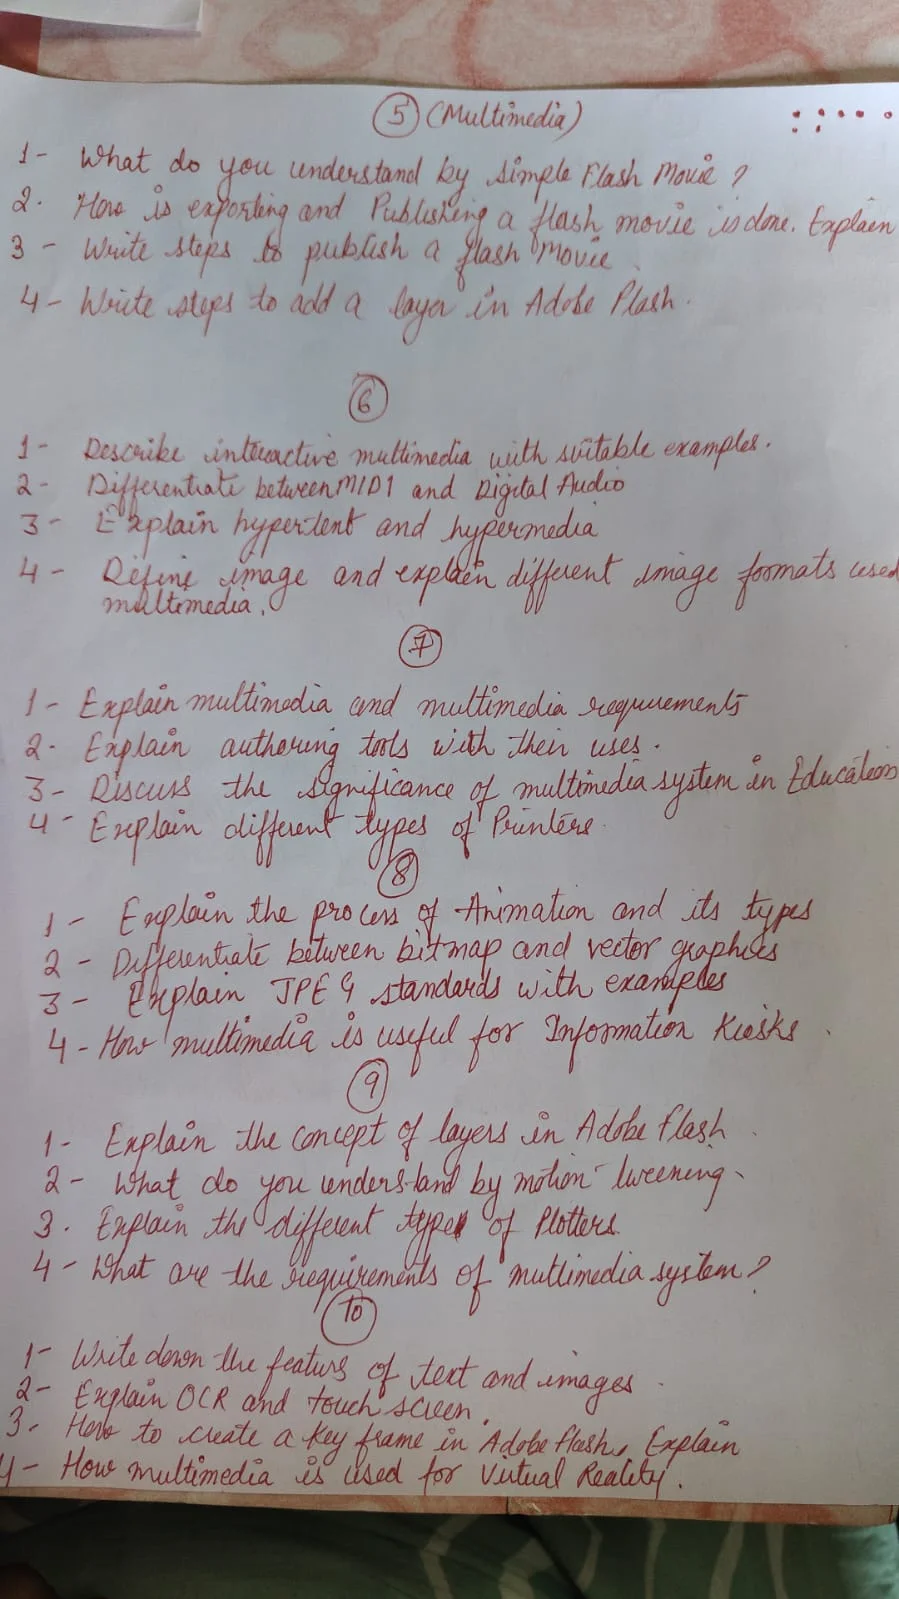 5 (Multimedia)
1- What do you understand by simple Flash Movie ?
2. How is exporting and Publishing a flash movie is done. Explain
3 - Write steps to publish a flash Movie
4 - Write steps to add a layer in Adobe Flash.
6
1- Describe interactive multimedia with suitable examples.
2- Differentiate between MIDI and Digital Audio
3- Explain hypertent and hypermedia
4- Define image and explain different image formats used
multimedia.
7
1- Explain multimedia and multimedia requirements
2- Explain authoring tools with their uses.
3- Discuss the significance of multimedia system in Education
4- Explain different types of Printers.
8
1- Explain the process of Animation and its types
2- Differentiate between bitmap and vector graphics
3- Explain JPEG standards with examples
4- How multimedia is useful for Information Kiosks.
9
1- Explain the concept of layers in Adobe Flash.
2- What do you understand by motion tweening.
3. Explain the different type of Plotters.
4- What are the requirements of multimedia system?
10
1- Write down the feature of text and images.
2- Explain OCR and touch screen.
3- How to create a key frame in Adobe flash, Explain
4- How multimedia is used for Virtual Reality.